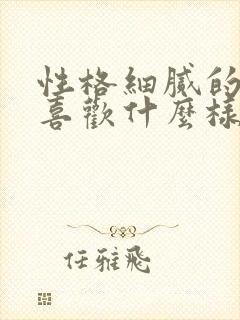 性格細膩的
喜歡什麼樣
任雅飛